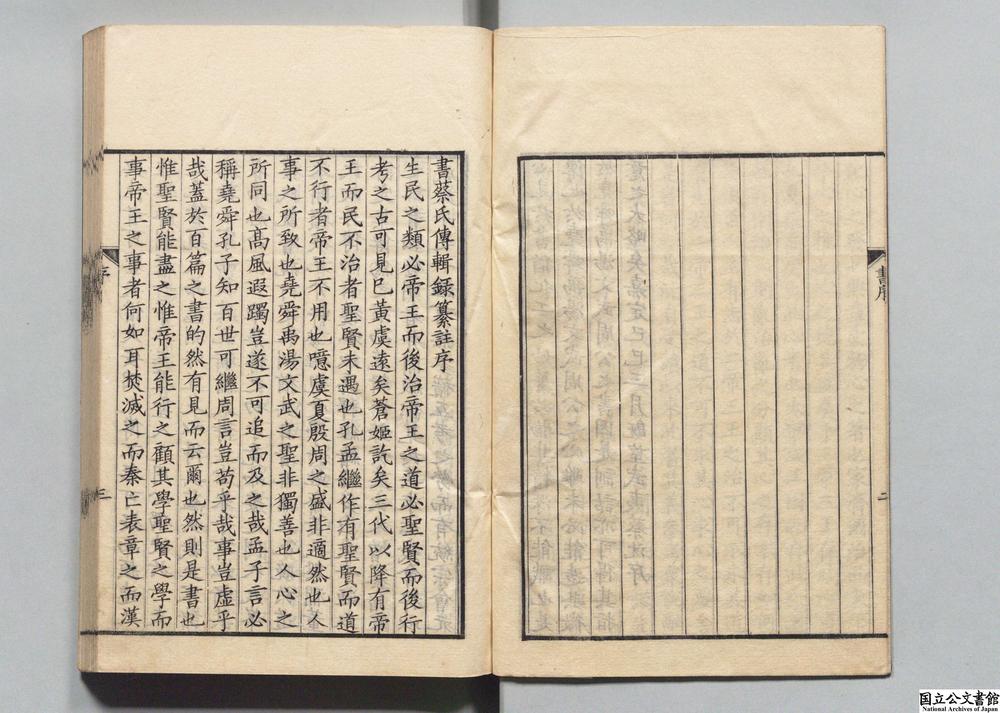 書序
二
書蔡氏傳輯録纂註序
生民之類必帝王而後治帝王之道必聖賢而後行
考之古可見已黃虞遠矣蒼姬訖矣三代以降有帝
王而民不治者聖賢未遇也孔孟繼作有聖賢而道
不行者帝王不用也噫虞夏殷周之盛非適然也人
事之所致也堯舜禹湯文武之聖非獨善也人心之
所同也髙風遐躅豈遂不可追而及之哉孟子言必
稱堯舜孔子知百世可繼周言豈苟乎哉事豈虛乎
哉蓋於百篇之書的然有見而云爾也然則是書也
惟聖賢能盡之惟帝王能行之顧其學聖賢之學而
事帝王之事者何如耳焚滅之而秦亡表章之而漢
序
三
国立公文書館
National Archives of Japan